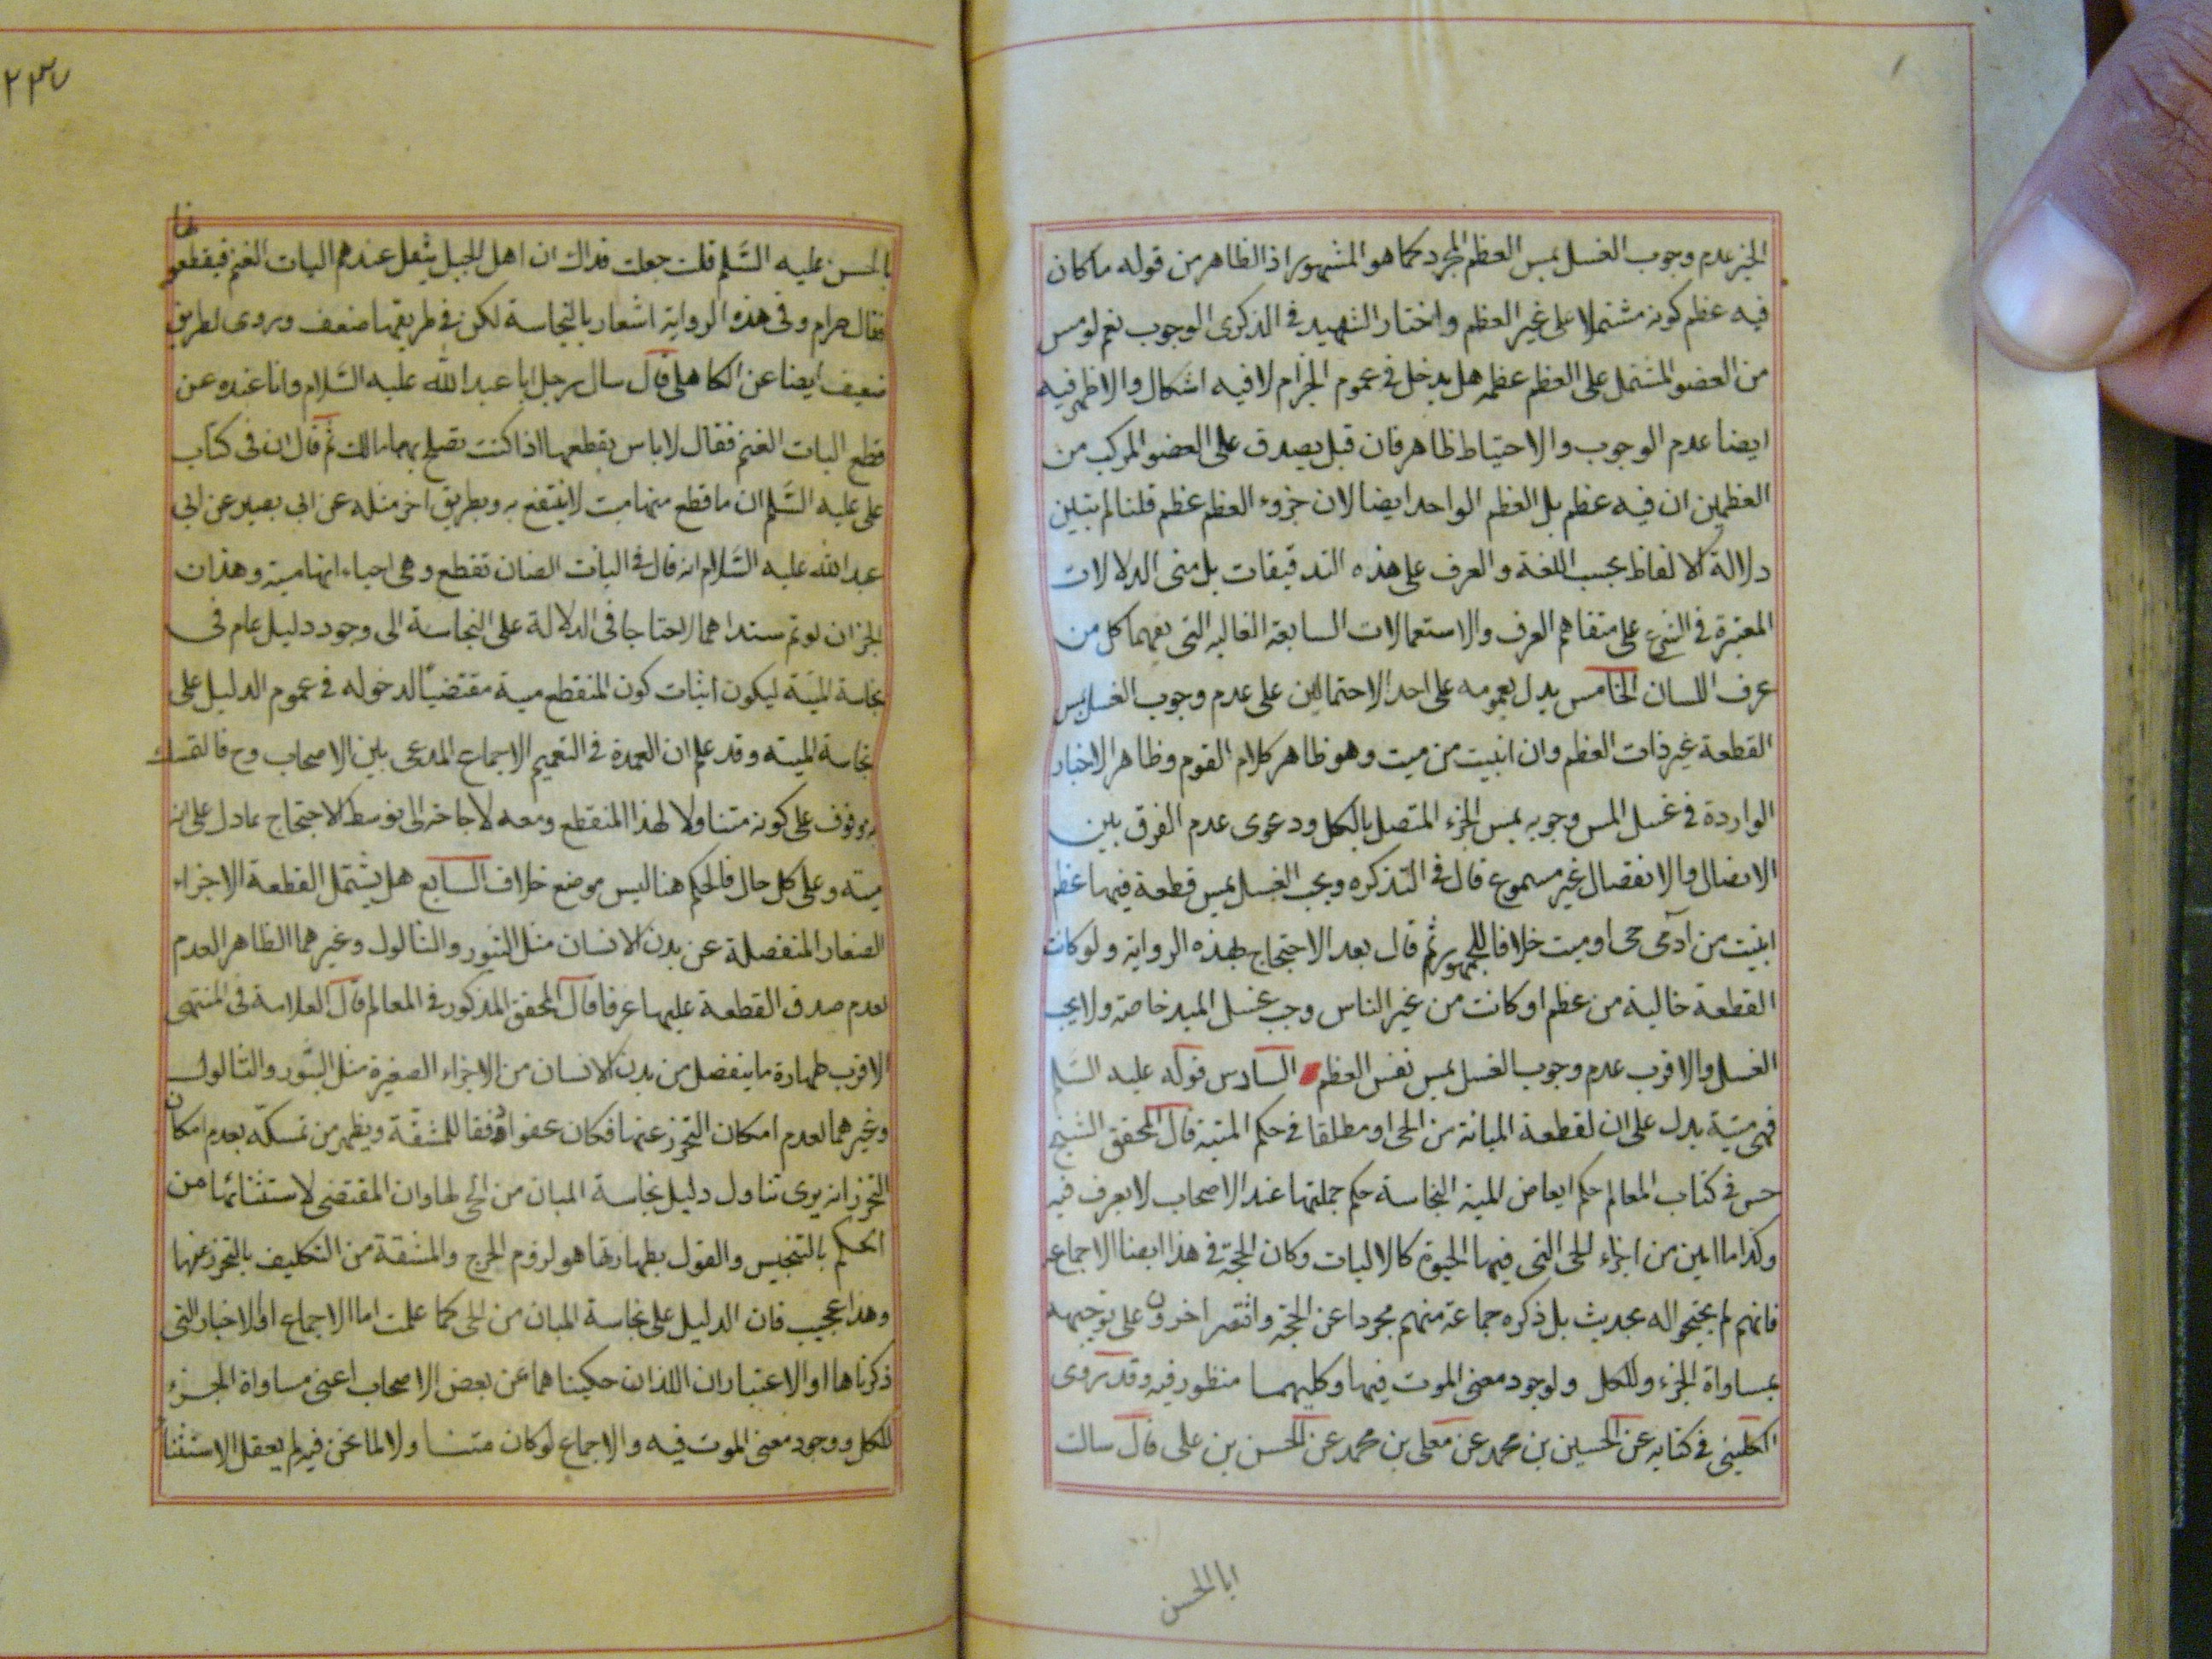 الخبر عدم وجوب الغسل بمس العظم المجرد كما هو المشهور اذ الظاهر من قوله ما كان
فيه عظم كونه مشتملا على غير العظم واختار الشهيد في الذكرى الوجوب نعم لو مس
من العضو المشتمل على العظم عظمه هل يدخل في عموم الجزام لا فيه اشكال والاظهر فيه
ايضا عدم الوجوب والاحتياط ظاهر فان قيل يصدق على العضو المركب من
العظمين ان فيه عظم بل العظم الواحد ايضا لان جزوء العظم عظم قلنا لم يتبين
دلالة الالفاظ بحسب اللغة والعرف على هذه التدقيقات بل مبنى الدلالات
المعتبرة في الشرع على متفاهم العرف والاستعمالات السابعة الغالبه التي يفهمها كل من
عرف اللسان الخامس يدل بعمومه على احد الاحتمالين على عدم وجوب الغسل بمس
القطعة غير ذات العظم وان ابنيت من ميت وهو ظاهر كلام القوم وظاهر الاخبار
الواردة في غسل المس وجوبه بمس الجزء المتصل بالكل ودعوى عدم الفرق بين
الاتصال والانفصال غير مسموع قال في التذكره ويجب الغسل بمس قطعة فيها عظم
ابنيت من آدمى حى او ميت خلافا للجمهور ثم قال بعد الاحتجاج بهذه الرواية ولو كانت
القطعة خالية من عظم او كانت من غير الناس وجب غسل اليد خاصه ولا يجب
الغسل والاقرب عدم وجوب الغسل بمس نفس العظم السادس قوله عليه السلم
فهى ميتة يدل على ان لقطعة المبانة من الحى او مطلقا في حكم الميتة قال المحقق الشيخ
حسن في كتاب المعالم حكم ابعاض الميته النجاسة حكم جملتها عند الاصحاب لا يعرف فيه
وكذا ما ابين من اجزاء الحى التي فيها الحيوة كالاليات وكان الحجة في هذا ايضا الاجماع
فانهم لم يحتجوا له بحديث بل ذكره جماعة منهم مجردا عن الحجة واقتصر اخرون على توجيهه
بمساواة الجزء وللكل ولوجود معنى الموت فيها وكليهما منظور فيه وقد روى
الكليني في كتابه عن الحسين بن محمد عن معلى بن محمد عن الحسن بن على قال سالت
ابا الحسن
٢٣٧
بالحسن عليه السلم قلت جعلت فداك ان اهل الجبل يثقل عندهم اليات الغنم فيقطعونها
فقال حرام وفي هذه الرواية اشعار بالنجاسة لكن في طريقها ضعف وروى بطريق
ضعيف ايضا عن الكاهلى قال سال رجل ابا عبد الله عليه السلام وانا عنده عن
قطع اليات الغنم فقال لا باس بقطعها اذا كنت تصلح بها مالك ثم قال ان في كتاب
على عليه السلم ان ما قطع منها ميت لا ينتفع به وبطريق اخر مثله عن ابي بصير عن ابي
عبد الله عليه السلام انه قال في اليات الضان تقطع وهى احياء انها ميته وهذان
الخبران لو تم سنداهما لاحتاجا في الدلالة على النجاسة الى وجود دليل عام في
نجاسة الميتة ليكون اثبات كون المنقطع ميتة مقتضيا لدخوله في عموم الدليل على
نجاسة الميته وقد علم ان العمدة في التعميم الاجماع المدعى بين الاصحاب وح فالتمسك
به موقوف على كونه متناولا لهذا المنقطع ومعه لا حاجة الى توسط الاحتجاج بما دل على انه
ميته وعلى كل حال فالحكم هنا ليس موضع خلاف السابع هل يشتمل القطعة الاجزاء
الصغار المنفصلة عن بدن الانسان مثل البثور والثالول وغيرهما الظاهر العدم
لعدم صدق القطعة عليها عرفا قال المحقق المذكور في المعالم قال العلامة في المنتهى
الاقرب طهارة ما ينفصل من بدن الانسان من الاجزاء الصغيرة مثل البثور والثالول
وغيرهما لعدم امكان التحرز عنها فكان عفوا دفعا للمشقة ويظهر من تمسكه بعدم امكان
التحرز انه يرى تناول دليل نجاسة المبان من الحى لها وان المقتضى لاستثنائها من
الحكم بالتنجيس والقول بطهارتها هو لزوم الحرج والمشقة من التكليف بالتحرز عنها
وهذا عجيب فان الدليل على نجاسة المبان من الحى كما علمت اما الاجماع او الاخبار التي
ذكرناها او الاعتباران اللذان حكيناهما عن بعض الاصحاب اعنى مساواة الجزء
للكل ووجود معنى الموت فيه والاجماع لو كان متناولا لما نحن فيه لم يعقل الاستثناء